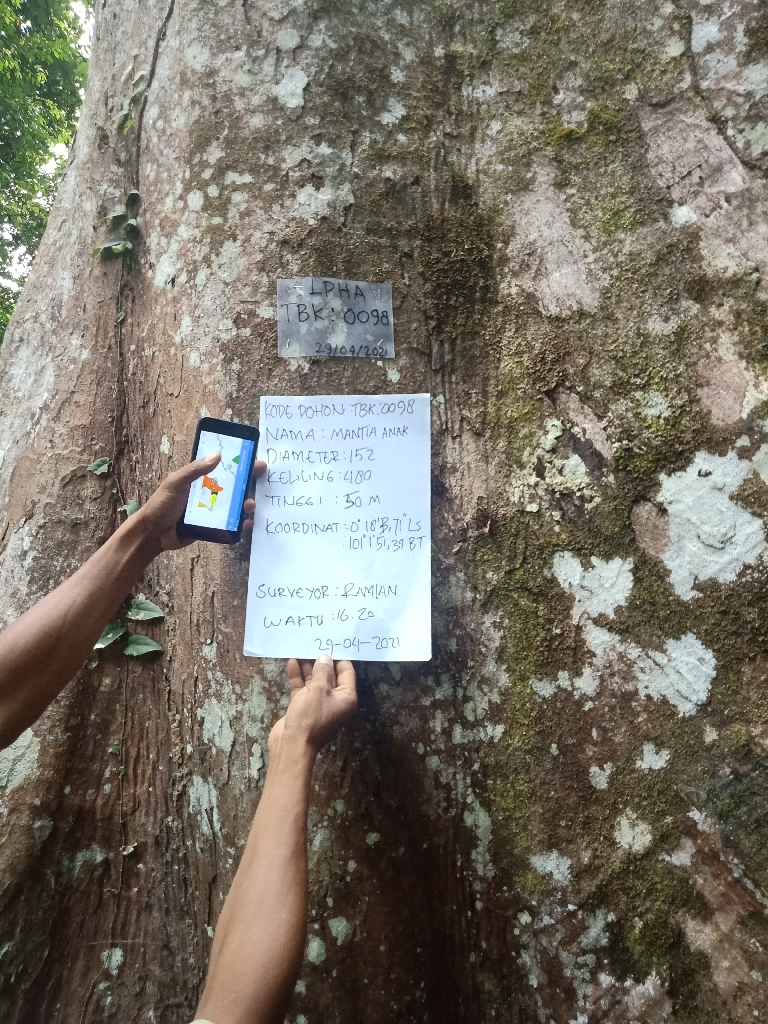 LPHA
TBK: 0098
29/04/2021
KODE POHON TBK:0098
NAMA : MANTIH ANAK
DIAMETER : 152
KELILING : 480
TINGGI : 50 M
KOORDINAT : 0° 18' 3,71" LS
: 101° 1' 51,39 BT
SURVEYOR : RAMLAN
WAKTU : 16.20
29-04-2021